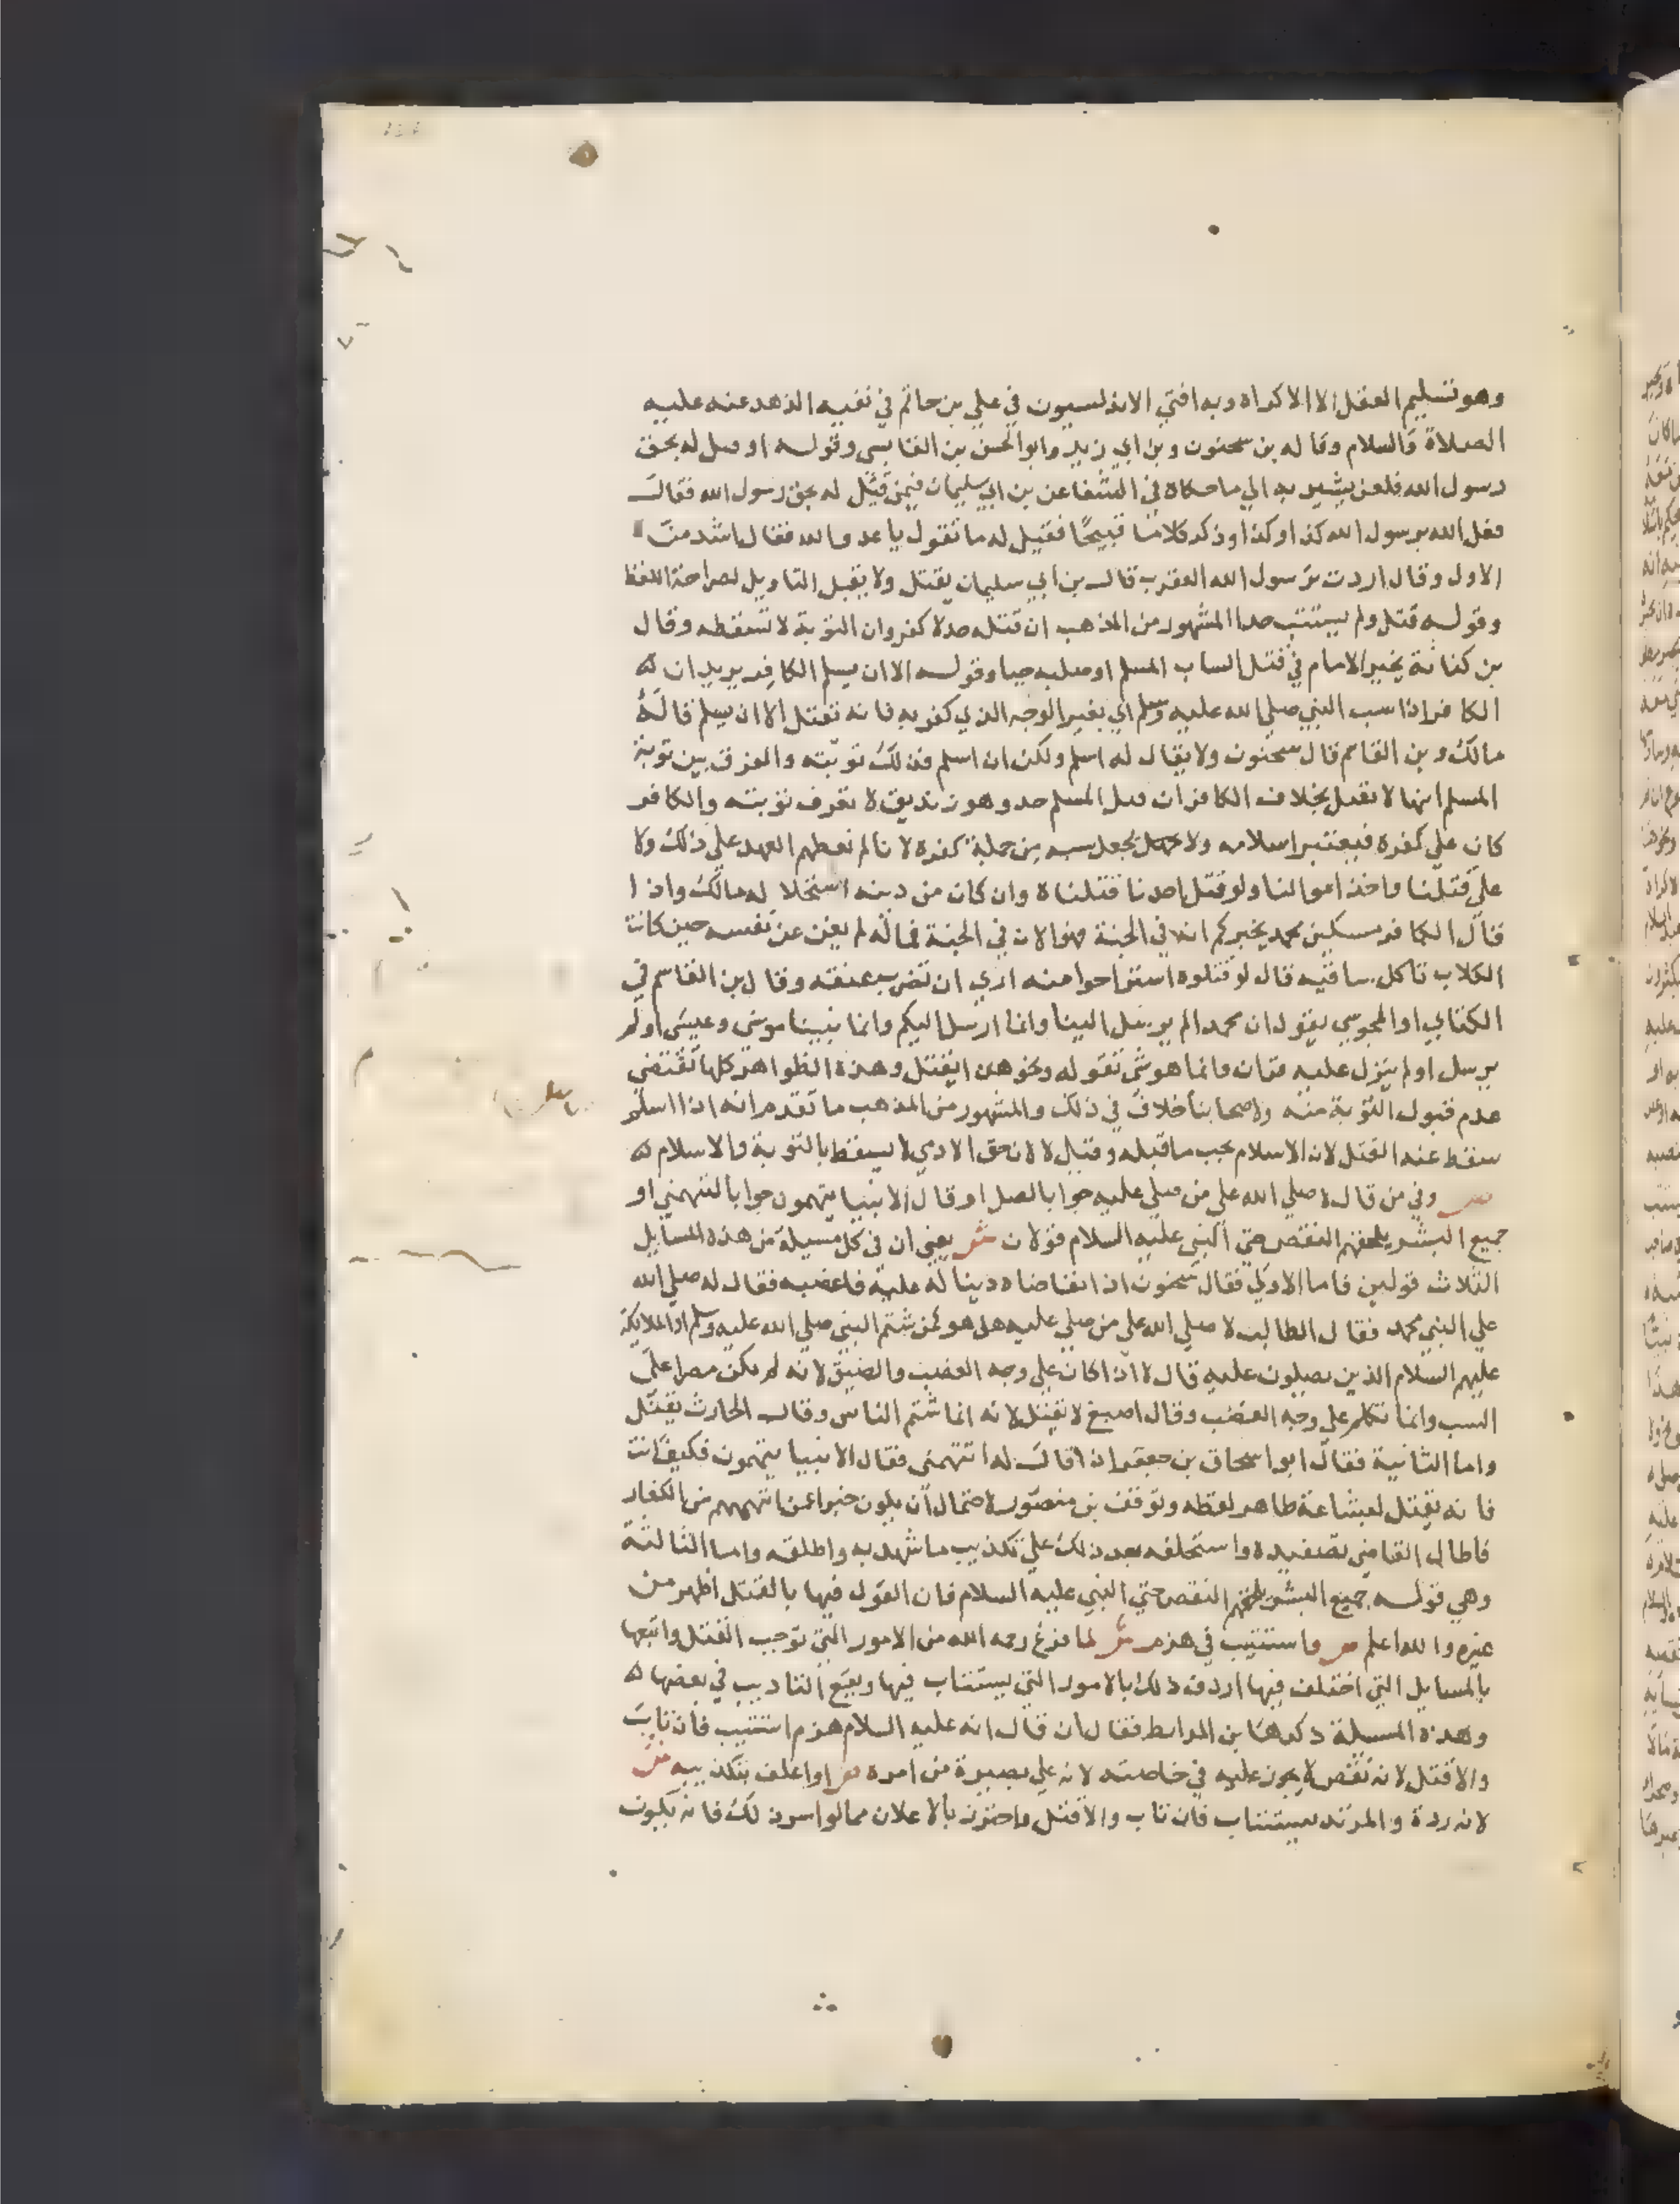 وهو تسليم العقل الا الاكراه وبه افتي الاندلسيون في علي بن حاتم في نفيه الزهد عنه عليه
الصلاة والسلام وقاله بن سحنون وبن ابي زيد وابو الحسن بن القابسي وقوله او قيل له بحق
رسول الله فلعن يشير به الي ما حكاه في الشفا عن بن ابي سليمان فيمن قيل له بحق رسول الله فقال
فعل الله برسول الله كذا وكذا وذكر كلاما قبيحا فقيل له ما تقول يا عدو الله فقال اشد من
الاول وقال اردت برسول الله العقرب قال بن ابي سليمان يقتل ولا يقبل التاويل لصراحة اللفظ
وقوله قتل ولم يستتب حدا المشهور من المذهب ان قتله حد لا كفر وان التوبة لا تسقطه وقال
بن كنانة يخير الامام في قتل الساب المسلم او صلبه حيا وقوله الا ان يسلم الكافر يريد ان
الكافر اذا سب النبي صلي الله عليه وسلم اي بغير الوجه الذي كفر به فانه يقتل الا ان يسلم قاله
مالك وبن القاسم قال سحنون ولا يقال له اسلم ولكن ان اسلم فذلك توبته والفرق بين توبة
المسلم انها لا تقبل بخلاف الكافر ان قتل المسلم حد وهو زنديق لا تعرف توبته والكافر
كان علي كفره فيعتبر اسلامه ولا يجعل سبه من جملة كفره لانا لم نعطهم العهد علي ذلك ولا
علي قتلنا واخذ اموالنا ولو قتل احدنا قتلناه وان كان من دينه استحلا له مالك واذا
قال الكافر مسكين محمد يخبركم انه في الجنة فهو الان في الجنة فماله لم يغن عن نفسه حين كانت
الكلاب تاكل ساقيه قال لو قتلوه استراحوا منه اري ان تضرب عنقه وقال بن القاسم في
الكتابي او المجوسي يقول ان محمدا لم يرسل الينا وانما ارسل اليكم وانما نبينا موسي وعيسي او لم
يرسل او لم ينزل عليه قران وانما هو شي تقوله ونحو هذا يقتل وهذه الظواهر كلها تقتضي
عدم قبول التوبة منه ولاصحابنا خلاف في ذلك والمشهور من المذهب ما تقدم انه اذا اسلم
سقط عنه القتل لان الاسلام يجب ما قبله وقيل لا لان حق الادمي لا يسقط بالتوبة والاسلام
ص وفي من قال لا صلي الله علي من صلي عليه جوابا لصل او قال الانبيا يتهمون جوابا لتتهمني او
جميع البشر يلحقهم النقص حتي النبي عليه السلام قولان ش يعني ان في كل مسيلة من هذه المسايل
الثلاث قولين فاما الاولي فقال سحنون اذا تقاضاه دينا له عليه فاغضبه فقال له صلي الله
علي النبي محمد فقال الطالب لا صلي الله علي من صلي عليه هل هو كمن شتم النبي صلي الله عليه وسلم او الملايكة
عليهم السلام الذين يصلون عليه قال لا اذا كان علي وجه الغضب والضيق لانه لم يكن مصرا علي
السب وانما تكلم علي وجه الغضب وقال اصبغ لا يقتل لانه انما شتم الناس وقال الحارث يقتل
واما الثانية فقال ابو اسحاق بن جعفر اذا قال له اتتهمني فقال الانبيا يتهمون فكيف انت
فانه يقتل لبشاعة ظاهر لفظه وتوقف بن منصور لاحتمال ان يكون خبرا عمن اتهمهم من الكفار
فاطال القاضي تصفيده واستحلفه بعد ذلك علي تكذيب ما شهد به واطلقه واما الثالثة
وهي قوله جميع البشر يلحقهم النقص حتي النبي عليه السلام فان القول فيها بالقتل اظهر من
غيره والله اعلم ص واستتيب في هزم ش لما فرغ رحمه الله من الامور التي توجب القتل واتبعها
بالمسايل التي اختلف فيها اردف ذلك بالامور التي يستتاب فيها ويقع التاديب في بعضها
وهذه المسيلة ذكرها بن المرابط فقال ان قال انه عليه السلام هزم استتيب فان تاب
والا قتل لانه نقص لا يجوز عليه في خاصته لانه علي بصيرة من امره ص او اعلن بتكذيبه ش
لانه ردة والمرتد يستتاب فان تاب والا قتل واحترز بالاعلان مما لو اسر ذلك فانه يكون